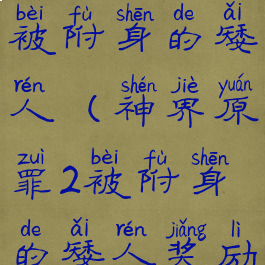 bèi fù shēn de ǎi
被附身的矮
rén shén jiè yuán
人（神界原
zuì bèi fù shēn
罪2被附身
de ǎi rén jiǎng lì
的矮人奖励